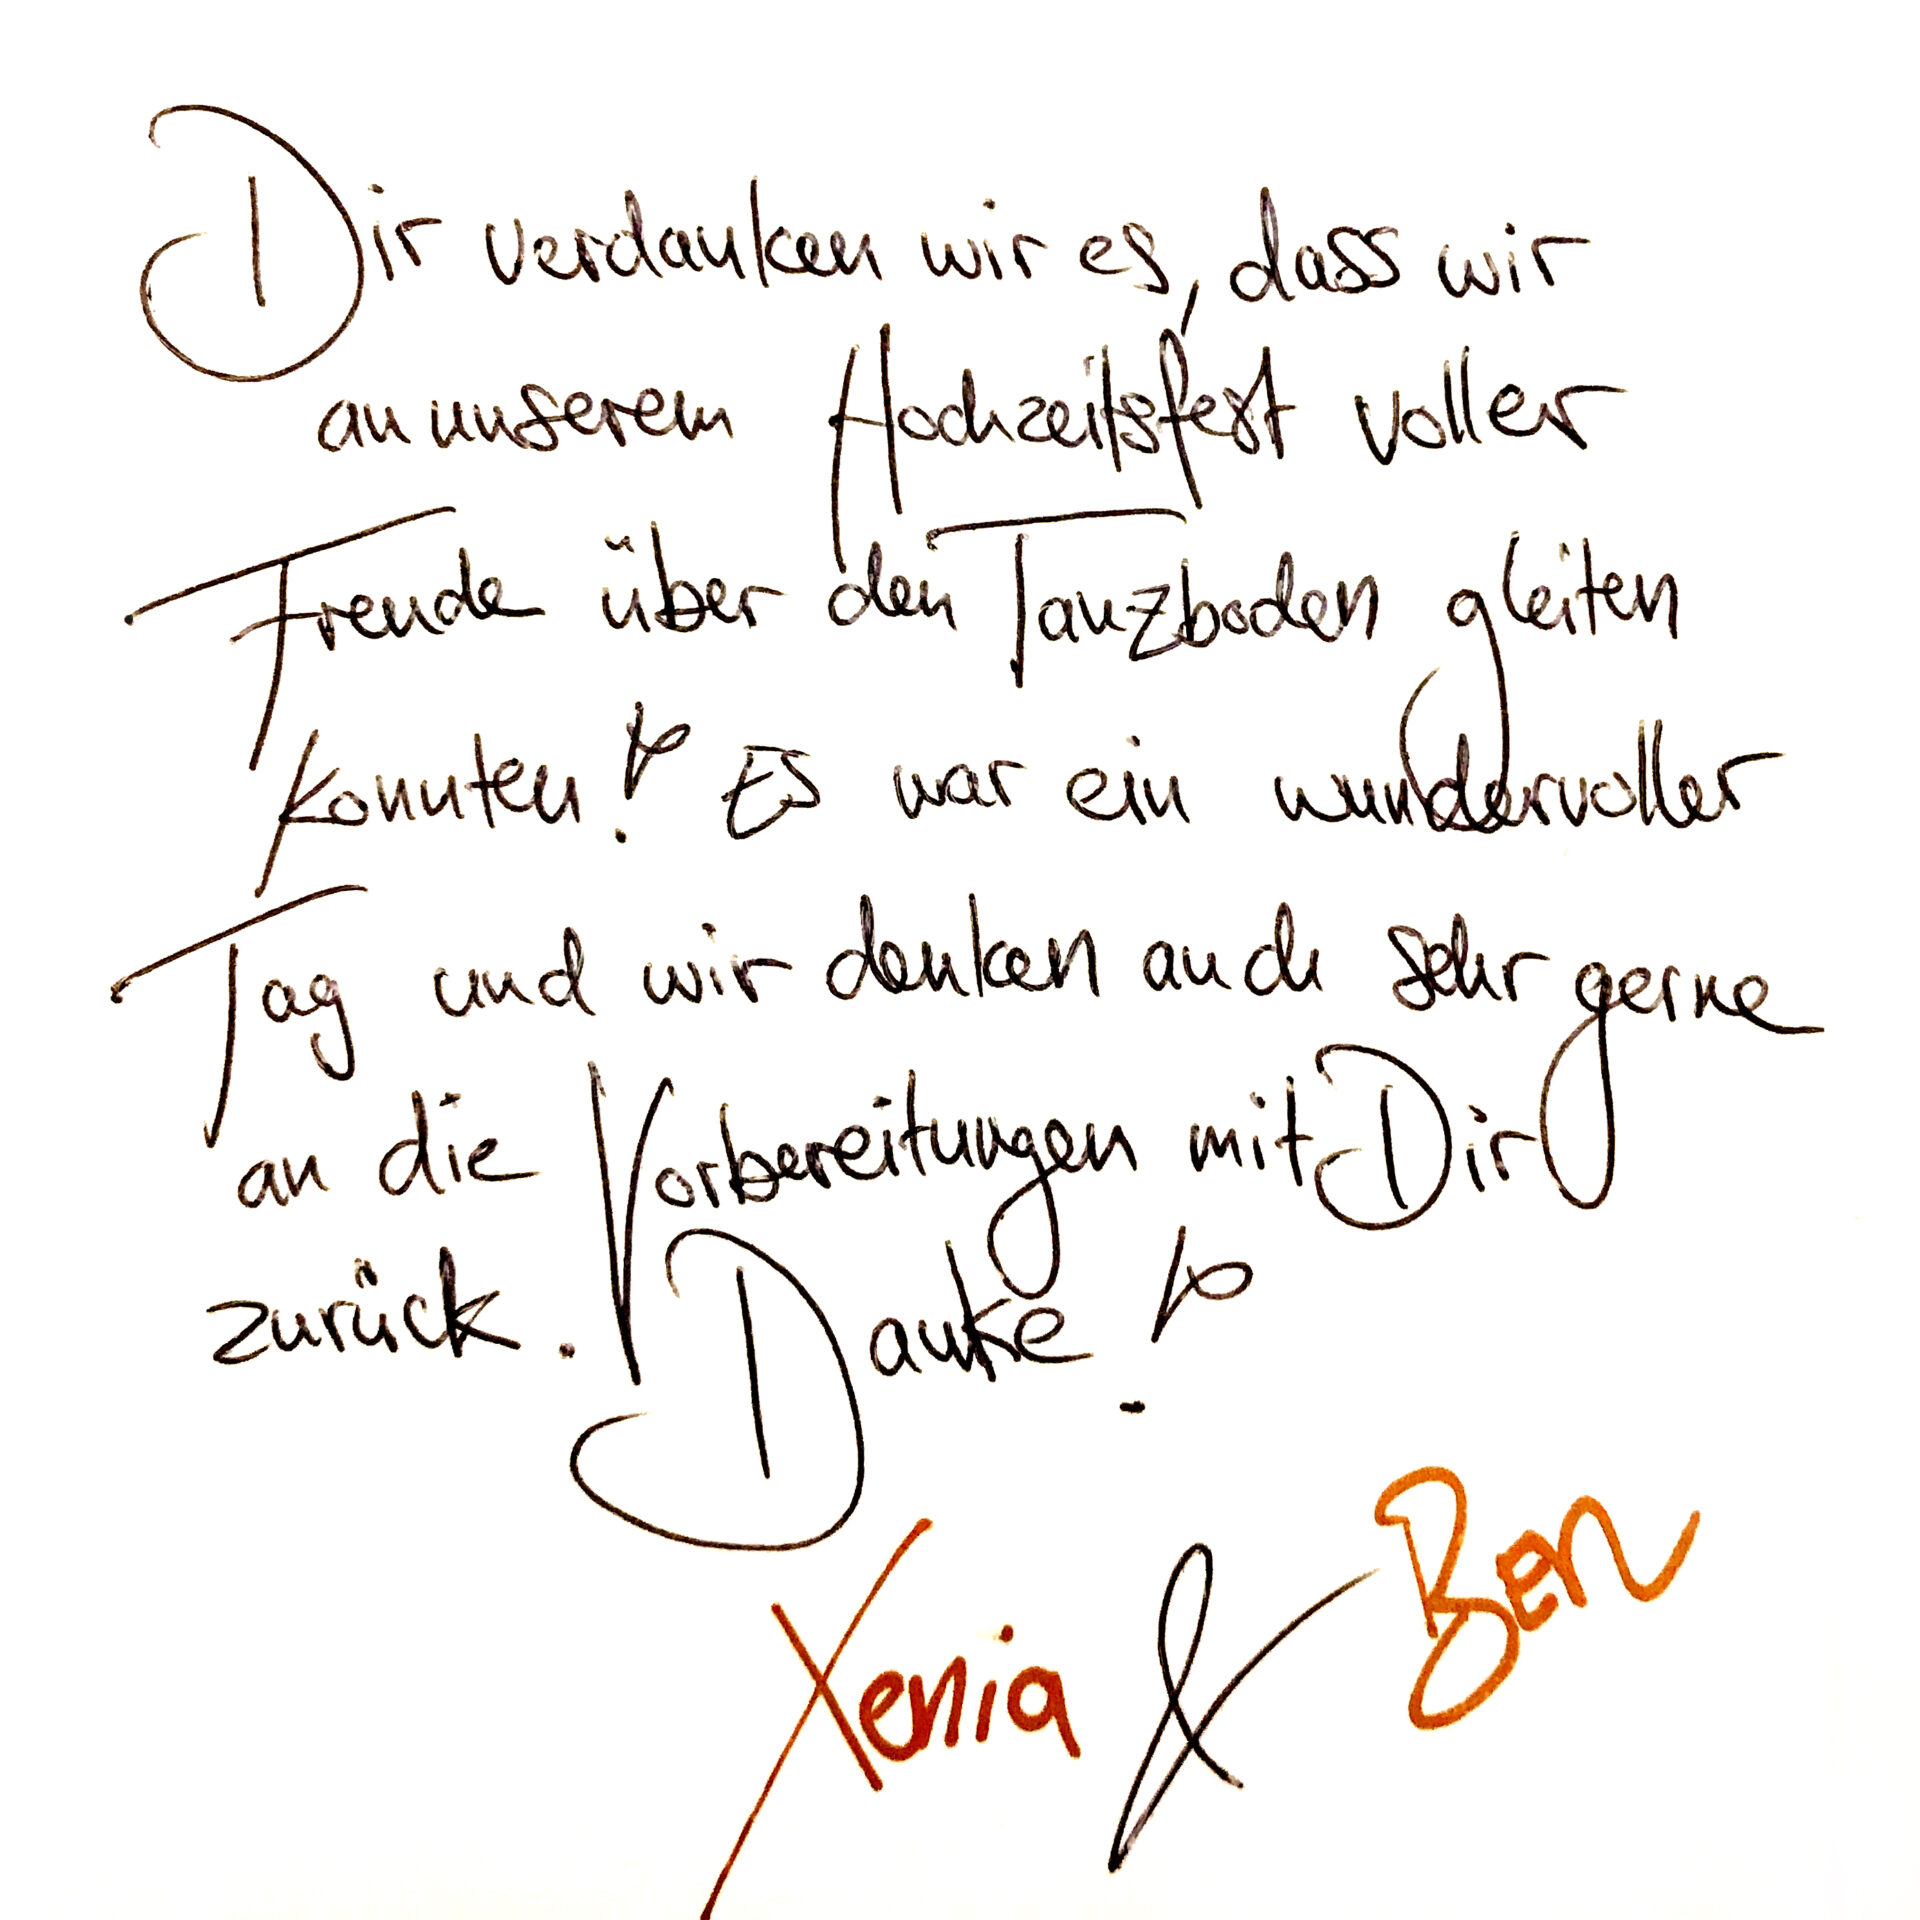 Dir verdanken wir es, dass wir
an unserem Hochzeitsfest voller
Freude über den Tanzboden gleiten
konnten! Es war ein wundervoller
Tag und wir denken auch sehr gerne
an die Vorbereitungen mit Dir
zurück. Danke!
Xenia & Ben